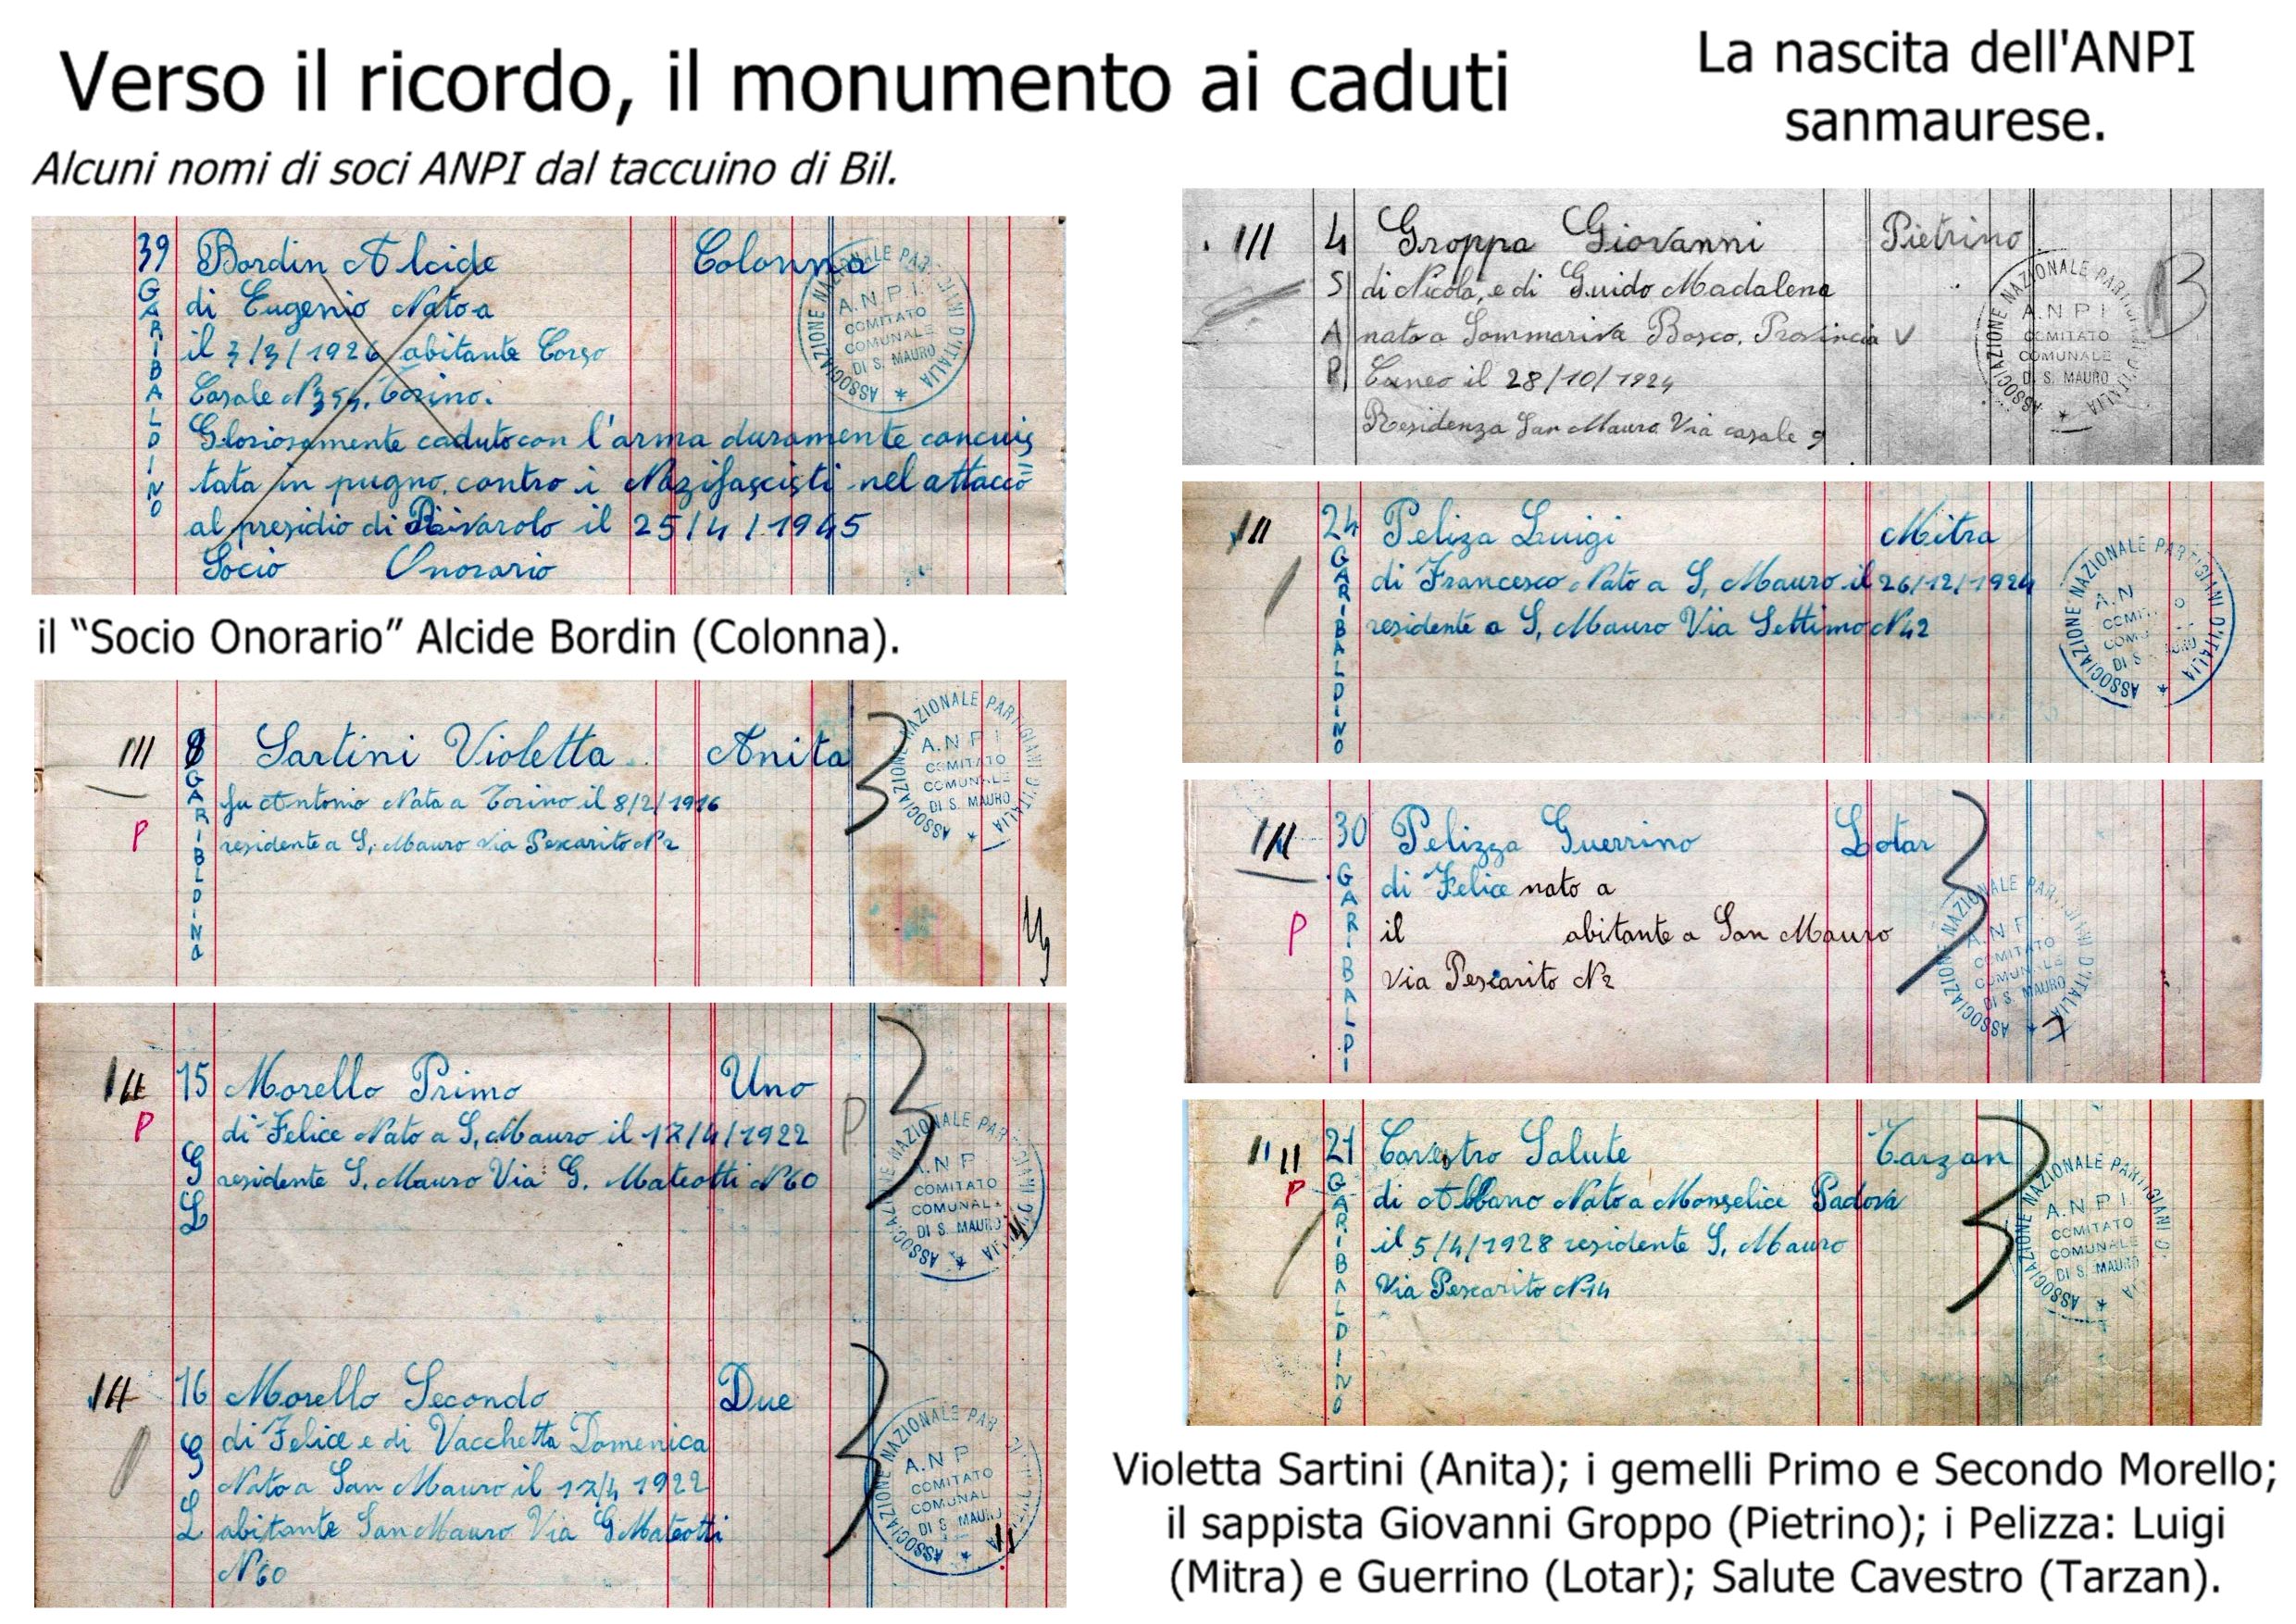 Verso il ricordo, il monumento ai caduti
La nascita dell'ANPI
sanmaurese.
Alcuni nomi di soci ANPI dal taccuino di Bil.
39 Bordin Alcide Colonna
GARIBALDINO
di Eugenio Nato a
il 3/3/1926 abitante Corso
Casale N 354, Torino.
Gloriosamente caduto con l'arma duramente concuis
tata in pugno, contro i Nazifascisti nel attacco
al presidio di Rivarolo il 25/4/1945
Socio Onorario
ASSOCIAZIONE NAZIONALE PARTIGIANI D'ITALIA
A.N.P.I.
COMITATO
COMUNALE
DI S. MAURO
il “Socio Onorario” Alcide Bordin (Colonna).
III 8 Sartini Violetta Anita
GARIBLDINA
fu Antonio Nata a Torino il 8/2/1916
P residente a S, Mauro Via Pescarito N 2
ASSOCIAZIONE NAZIONALE PARTIGIANI D'ITALIA
A.N.P.I
COMITATO
COMUNALE
DI S. MAURO
III 15 Morello Primo Uno
P di Felice Nato a S, Mauro il 17/4/1922 P
GL
residente S. Mauro Via G. Mateotti N 60
ASSOCIAZIONE NAZIONALE PARTIGIANI D'ITALIA
A.N.P.
COMITATO
COMUNALE
DI S. MAURO
III 16 Morello Secondo Due
GL
di Felice e di Vacchetta Domenica
Nato a San Mauro il 17/4 1922
abitante San Mauro Via G Mateotti
N 60
ASSOCIAZIONE NAZIONALE PAR
A.N.P
COMITATO
COMUNAL
DI S MAURO
III 4 Groppa Giovanni Pietrino
SAP
di Nicola, e di Guido Madalena
nato a Sommariva Bosco, Provincia V
Cuneo il 28/10/1924
Residenza San Mauro Via casale 9
ASSOCIAZIONE NAZIONALE PARTIGIANI D'ITALIA
A.N.P.I
COMITATO
COMUNALE
DI S. MAURO
III 24 Peliza Luigi Mitra
GARIBALDINO
di Francesco Nato a S, Mauro il 26/12/1924
residente a S, Mauro Via Settimo N 42
ASSOCIAZIONE NAZIONALE PARTIGIANI D'ITALIA
III 30 Pelizza Guerrino Lotar
GARIBALDI
di Felice nato a
P il abitante a San Mauro
via Pescarito N 2
ASSOCIAZIONE NAZIONALE PARTIGIANI D'ITALIA
COMITATO
COMUNALE
DI S. MAURO
IIII 21 Cavestro Salute Tarzan
P
GARIBALDINO
di Albano Nato a Monselice Padova
il 5/4/1928 residente S, Mauro
Via Pescarito N 14
ASSOCIAZIONE NAZIONALE PARTIGIANI D'
A.N.P.I.
COMITATO
COMUNALE
DI S. MAURO
Violetta Sartini (Anita); i gemelli Primo e Secondo Morello;
il sappista Giovanni Groppo (Pietrino); i Pelizza: Luigi
(Mitra) e Guerrino (Lotar); Salute Cavestro (Tarzan).